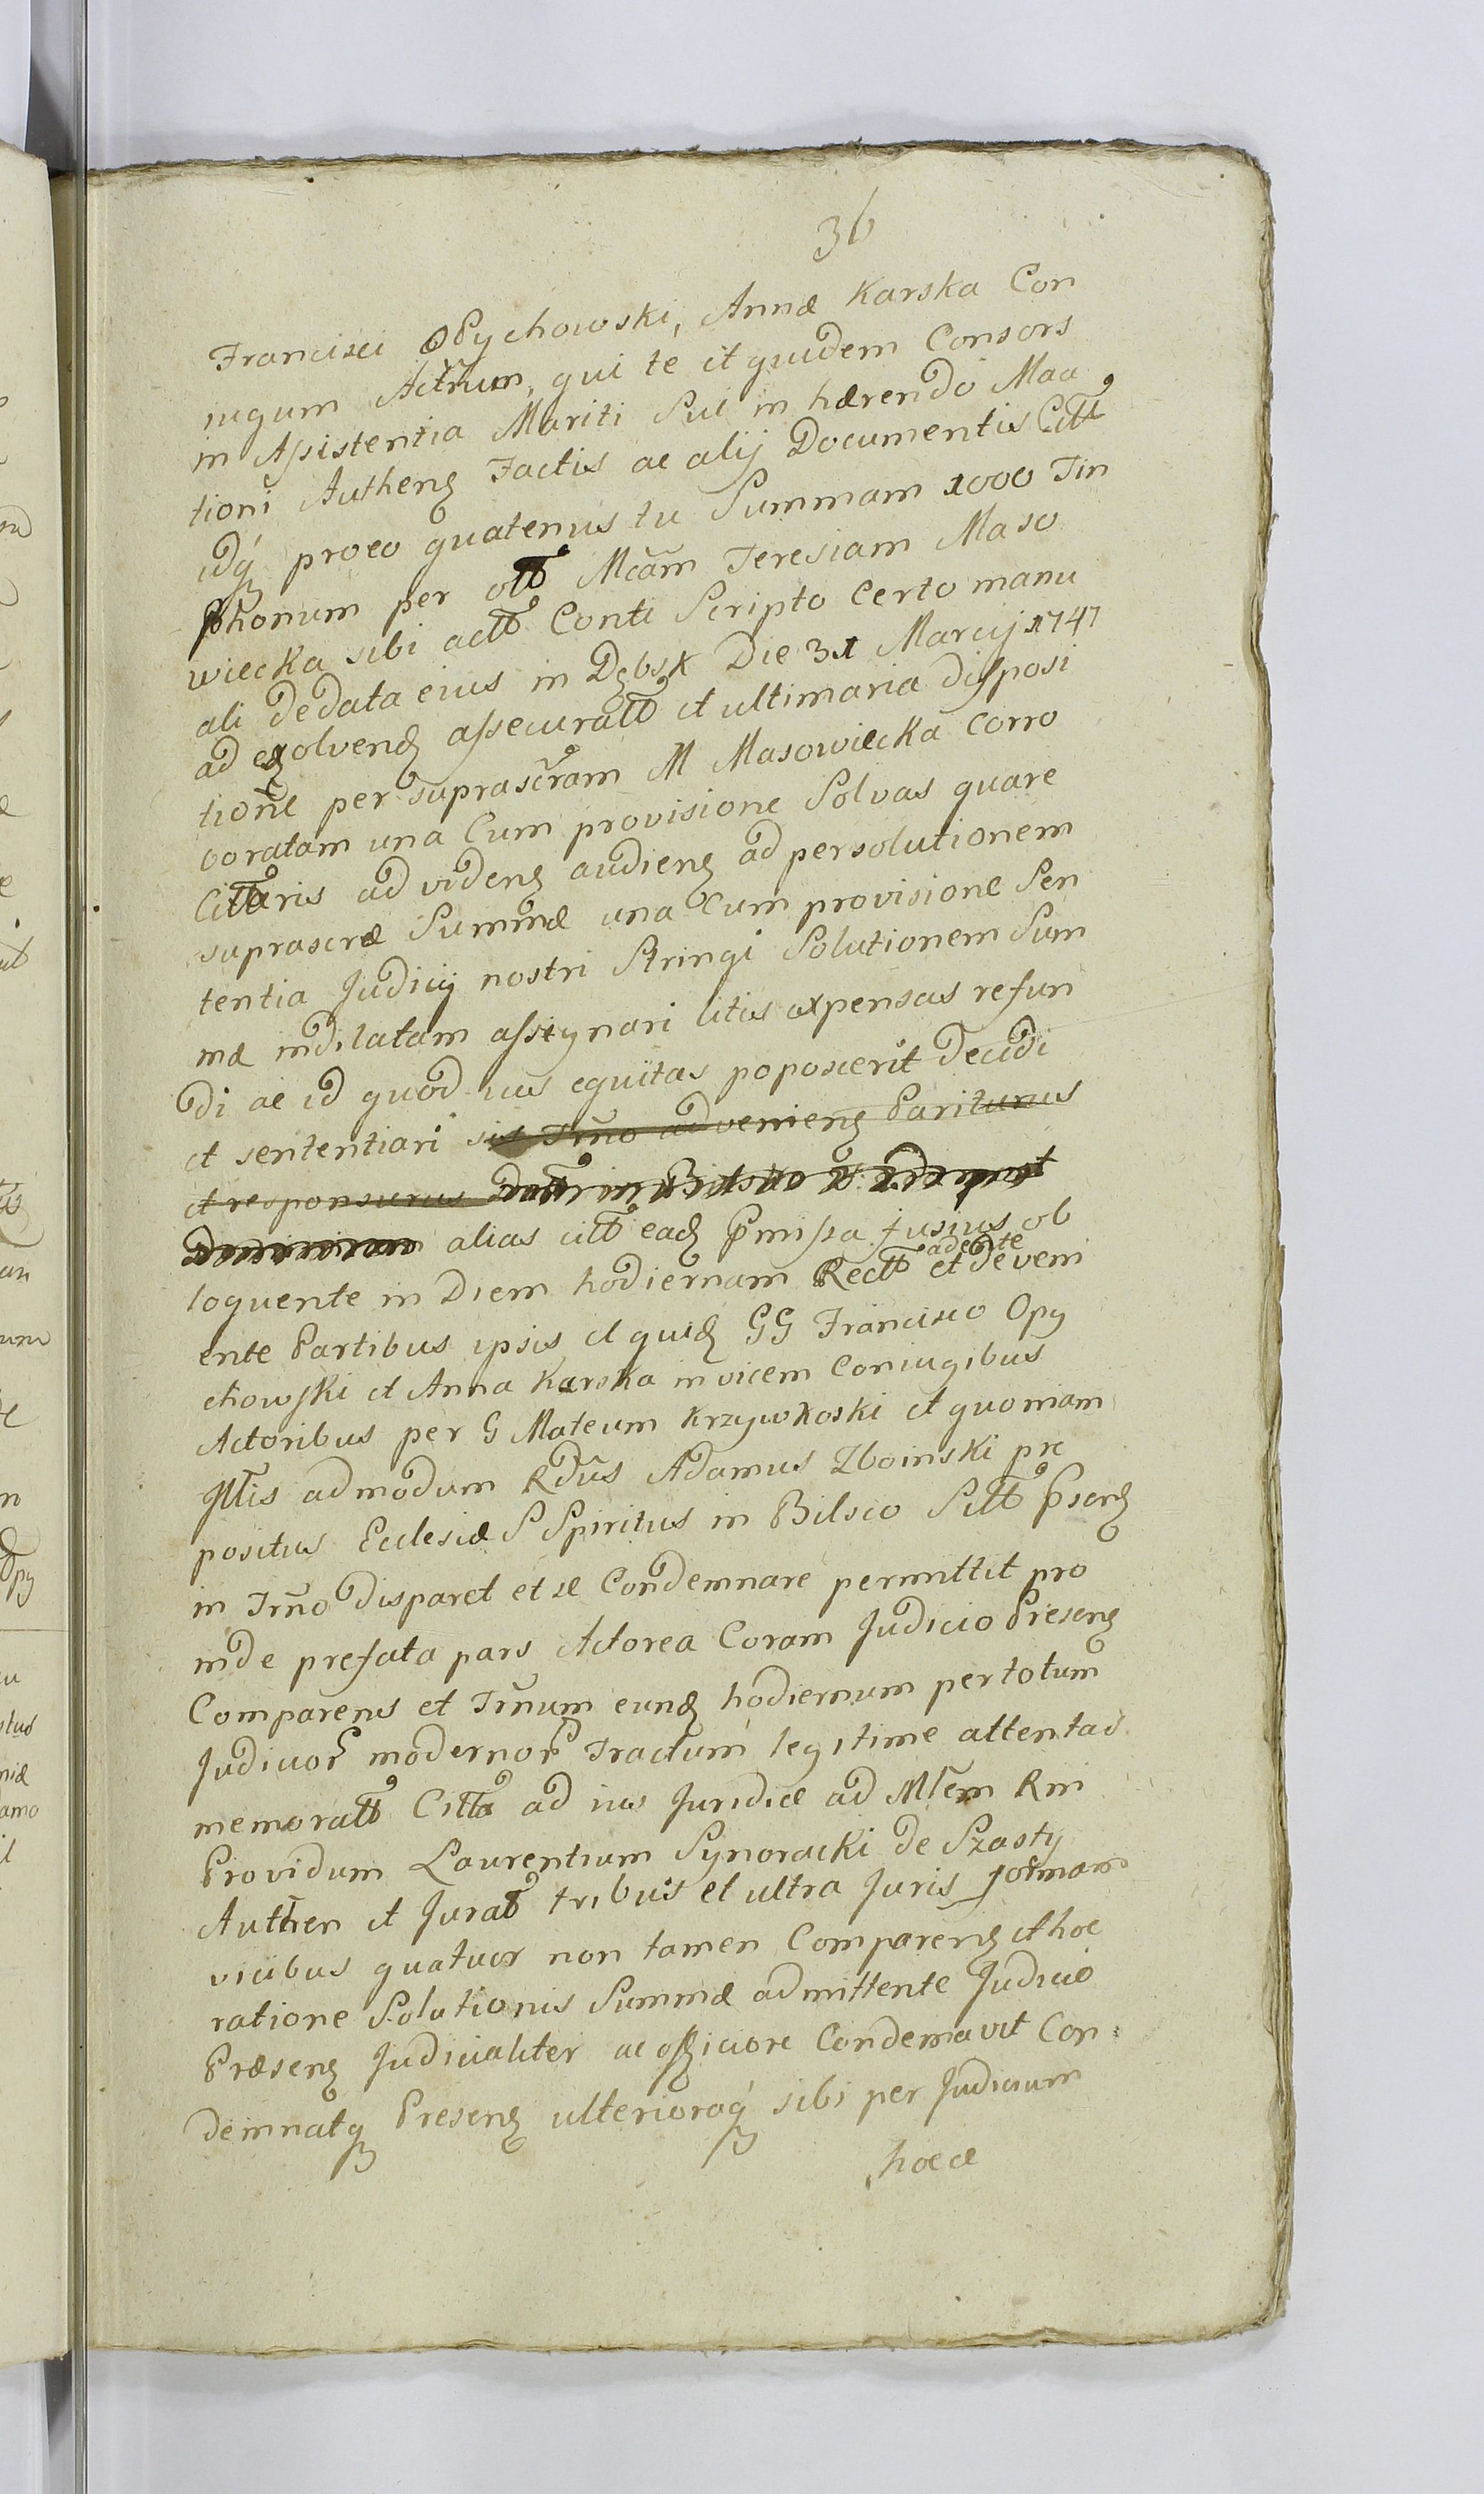 36
Francisci Opychowski, Annæ Karska Con
iugum Actrũm, qui te et quidem Consors
in Assistentia Mariti Sui in hærendo Maa
tioni Authenꝫ Factis ac alij Documentis Citt
idqꝫ proeo quatenus tu Summam 1000 Tin
phonum per ott Mcãm Teresiam Maso
wiecka sibi actt Conti Scripto Certo manu
ali dedata eius in Dębsk Die 31 Marcij 1747
ad exolvenꝫ assecuratt et ultimaria disposi
tione per suprascr̃am M Masowiecka corro
boratam una Cum provisione Solvas quare
Cittaris ad videnꝫ audienꝫ ad persolutionem
suprascræ Summæ una Cum provisione Sen
tentia Judicij nostri Stringi Solutionem Sum
mæ indilatam assignari litis expensas refun
di ac id quod ius equitas poposcerit Decidi
et sententiari sis Trñno advenienꝫ Pariturus
et responsurus
alias citt eadꝫ p̃missa fusius ob
loquente in Diem hodiernam Rectt et adente deveni
ente Partibus ipsis et quidꝫ GG Francisco Opy
chowski et Anna Karska invicem Coniugibus
Actoribus per G Mateum Krzywkoski et quoniam
Jlltis admodum Rdũs Adamus Zboinski pre
positus Ecclesiæ S Spiritus in Bilsco Citt p̃senꝫ
in Trñno disparet et se Condemnare permittit pro
inde prefata pars Actorea Coram Judicio Presenꝫ
Comparens et Trñnum eundꝫ hodiernum pertotum
Judicior modernor Tractum legitime attentas
memoratt Citta ad ius Juridicæ ad Mlem Rni
Providum Laurentium Synoracki de Szasty
Authen et Juratt tribus et ultra Juris formam
vicibus quatuor non tamen Comparenꝫ et hoc
ratione Solutionis Summæ admittente Judicio
Præsenꝫ Judicialiter ac officiore Condemnavit Con=
demnatqꝫ Presenꝫ ulterioraqꝫ sibi per Judicium
hoc æ